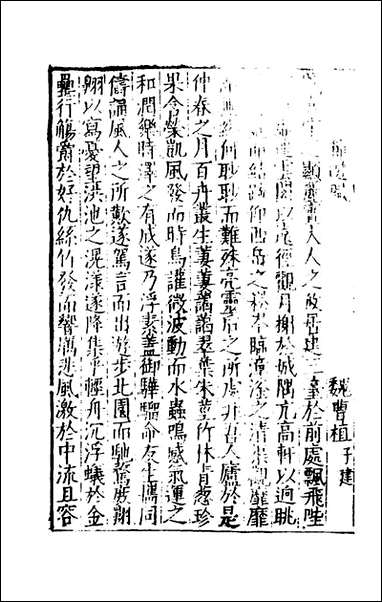 遊賦 魏曹植子建
顯麗實大人之攸居建三臺於前處飄飛陛
連雲閣以遠徑觀月榭於城隅亢高軒以迥眺
而結疏仰西岳之崧岑臨漳滏之清渠觀靡靡
終何眇眇而難殊亮靈后之所處非吾人廬於是
仲春之月百卉叢生萋萋藹藹翠葉朱莖竹林青葱珍
果含榮凱風發而時鳥讙微波動而水蟲鳴感氣運之
和潤樂時澤之有成遂乃浮素蓋御驊騮命友生攜同
儔誦風人之所歎遂駕言而出遊步北園而馳騖庶翱
翔以寫憂望洪池之滉瀁遂降集乎輕舟沉浮蟻於金
罍行觴爵於好仇絲竹發而響厲悲風激於中流且容